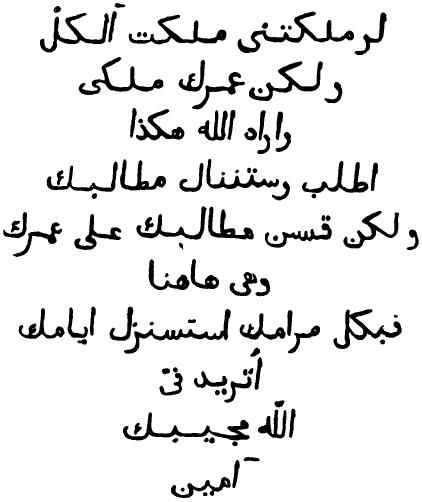 لو ملكتنى ملكت آلكلّ
ولكن عمرك ملكى
واراه الله هكذا
اطلب وستننال مطالبك
ولكن قسن مطالبك على عمرك
وهى هاهنا
فبكل مرامك استسنزل ايامك
أتريد فىّ
اللّه مجيبك
آمين